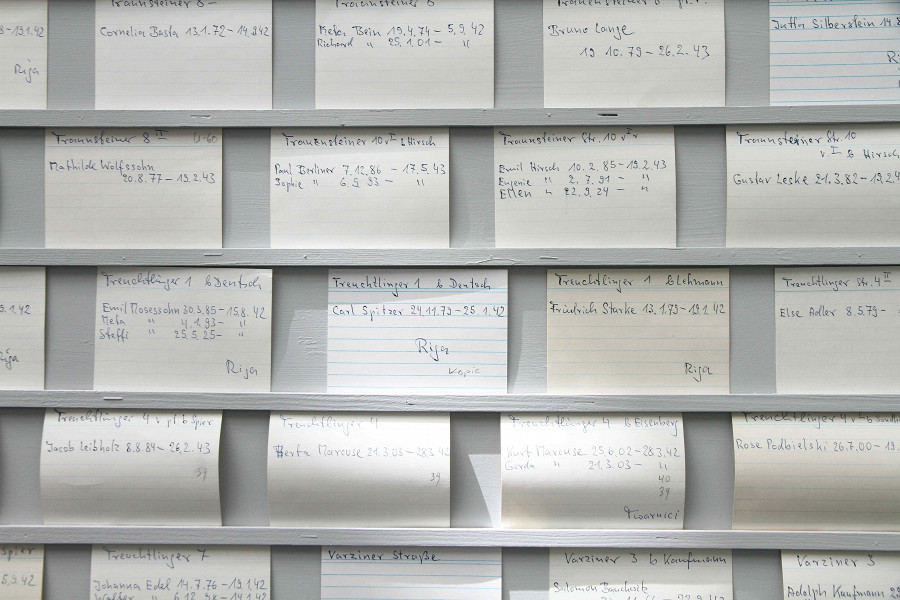 8-19.1.42
Riga
Traunsteiner 8-
Cornelia Basta 13.1.72-14.9.42
Traunsteiner 8
Meta Bein 19.4.74-5.9.42
Richard " 25.1.01- "
Traunsteiner 8
Bruno Lange
19.10.79-26.2.43
Jutta Silberstein 14.8
Ri
Traunsteiner 8 II
Mathilde Wolfssohn
20.8.77-19.2.43
Traunsteiner 10 v I b Hirsch
Paul Berliner 7.12.86 - 17.5.43
Sophie " 6.5.93 - "
Traunsteiner Str. 10 v I r
Emil Hirsch 10.2.85-19.2.43
Eugenie " 2.7.91 - "
Ellen " 22.9.24 - "
Traunsteiner Str. 10
v. I b Hirsch
Gustav Leske 21.3.82-19.2.4
5.1.42
Riga
Treuchtlinger 1 b Deutsch
Emil Mosessohn 30.3.85-15.8.42
Meta " 4.1.93- "
Steffi " 25.5.25- "
Riga
Treuchtlinger 1 b Deutsch
Carl Spitzer 24.11.79-25.1.42
Riga
Kopie
Treuchtlinger 1 b Lehmann
Friedrich Starke 13.1.79-19.1.42
Riga
Treuchtlinger Str. 4 II
Else Adler 8.5.79-
Treuchtlinger 4 v pt b Spier
Jacob Leibholz 8.8.84-26.2.43
39
Treuchtlinger 4
Herta Marcuse 21.3.03-28.3.42
39
Treuchtlinger 4 b Eisenberg
Kurt Marcuse 25.6.02-28.3.42
Gerda " 21.3.03- "
40
39
Twarnici
Treuchtlinger 4 v
Rose Podbielski 26.7.00-19.
Spier
5.9.42
Treuchtlinger 7
Johanna Edel 14.7.76-19.1.42
Walter " 6.12.98-14.1.42
Varziner Straße
Varziner 3 b Kaufmann
Salomon Bauchwitz
Varziner 3
Adolph Kaufmann